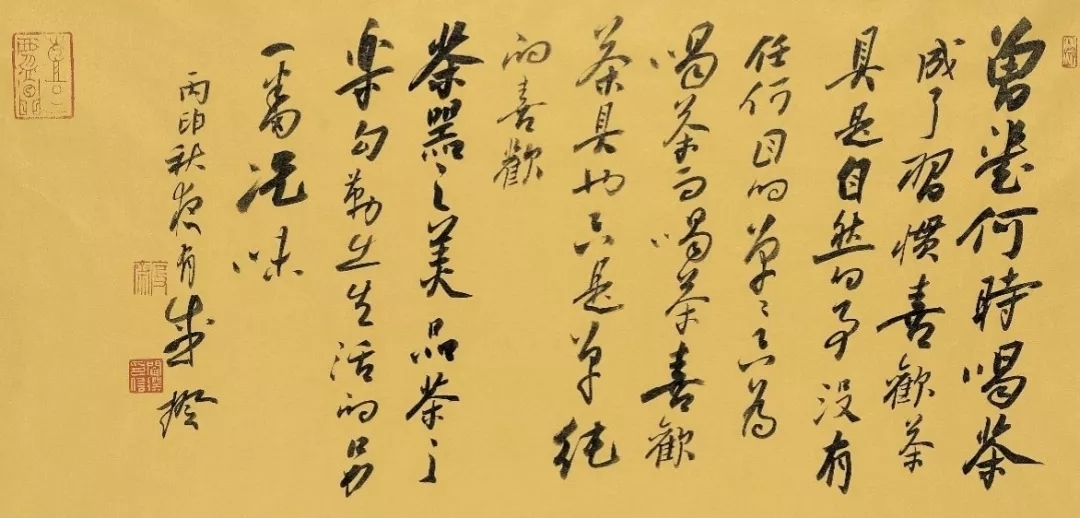 曾幾何時喝茶
成了習慣喜歡茶
具是自然的事没有
任何目的单〻只為
喝茶而喝茶喜歡
茶具也只是单純
的喜歡
茶器之美品茶之
楽勾勒出生活的另
一番况味
丙申秋夜有成揆